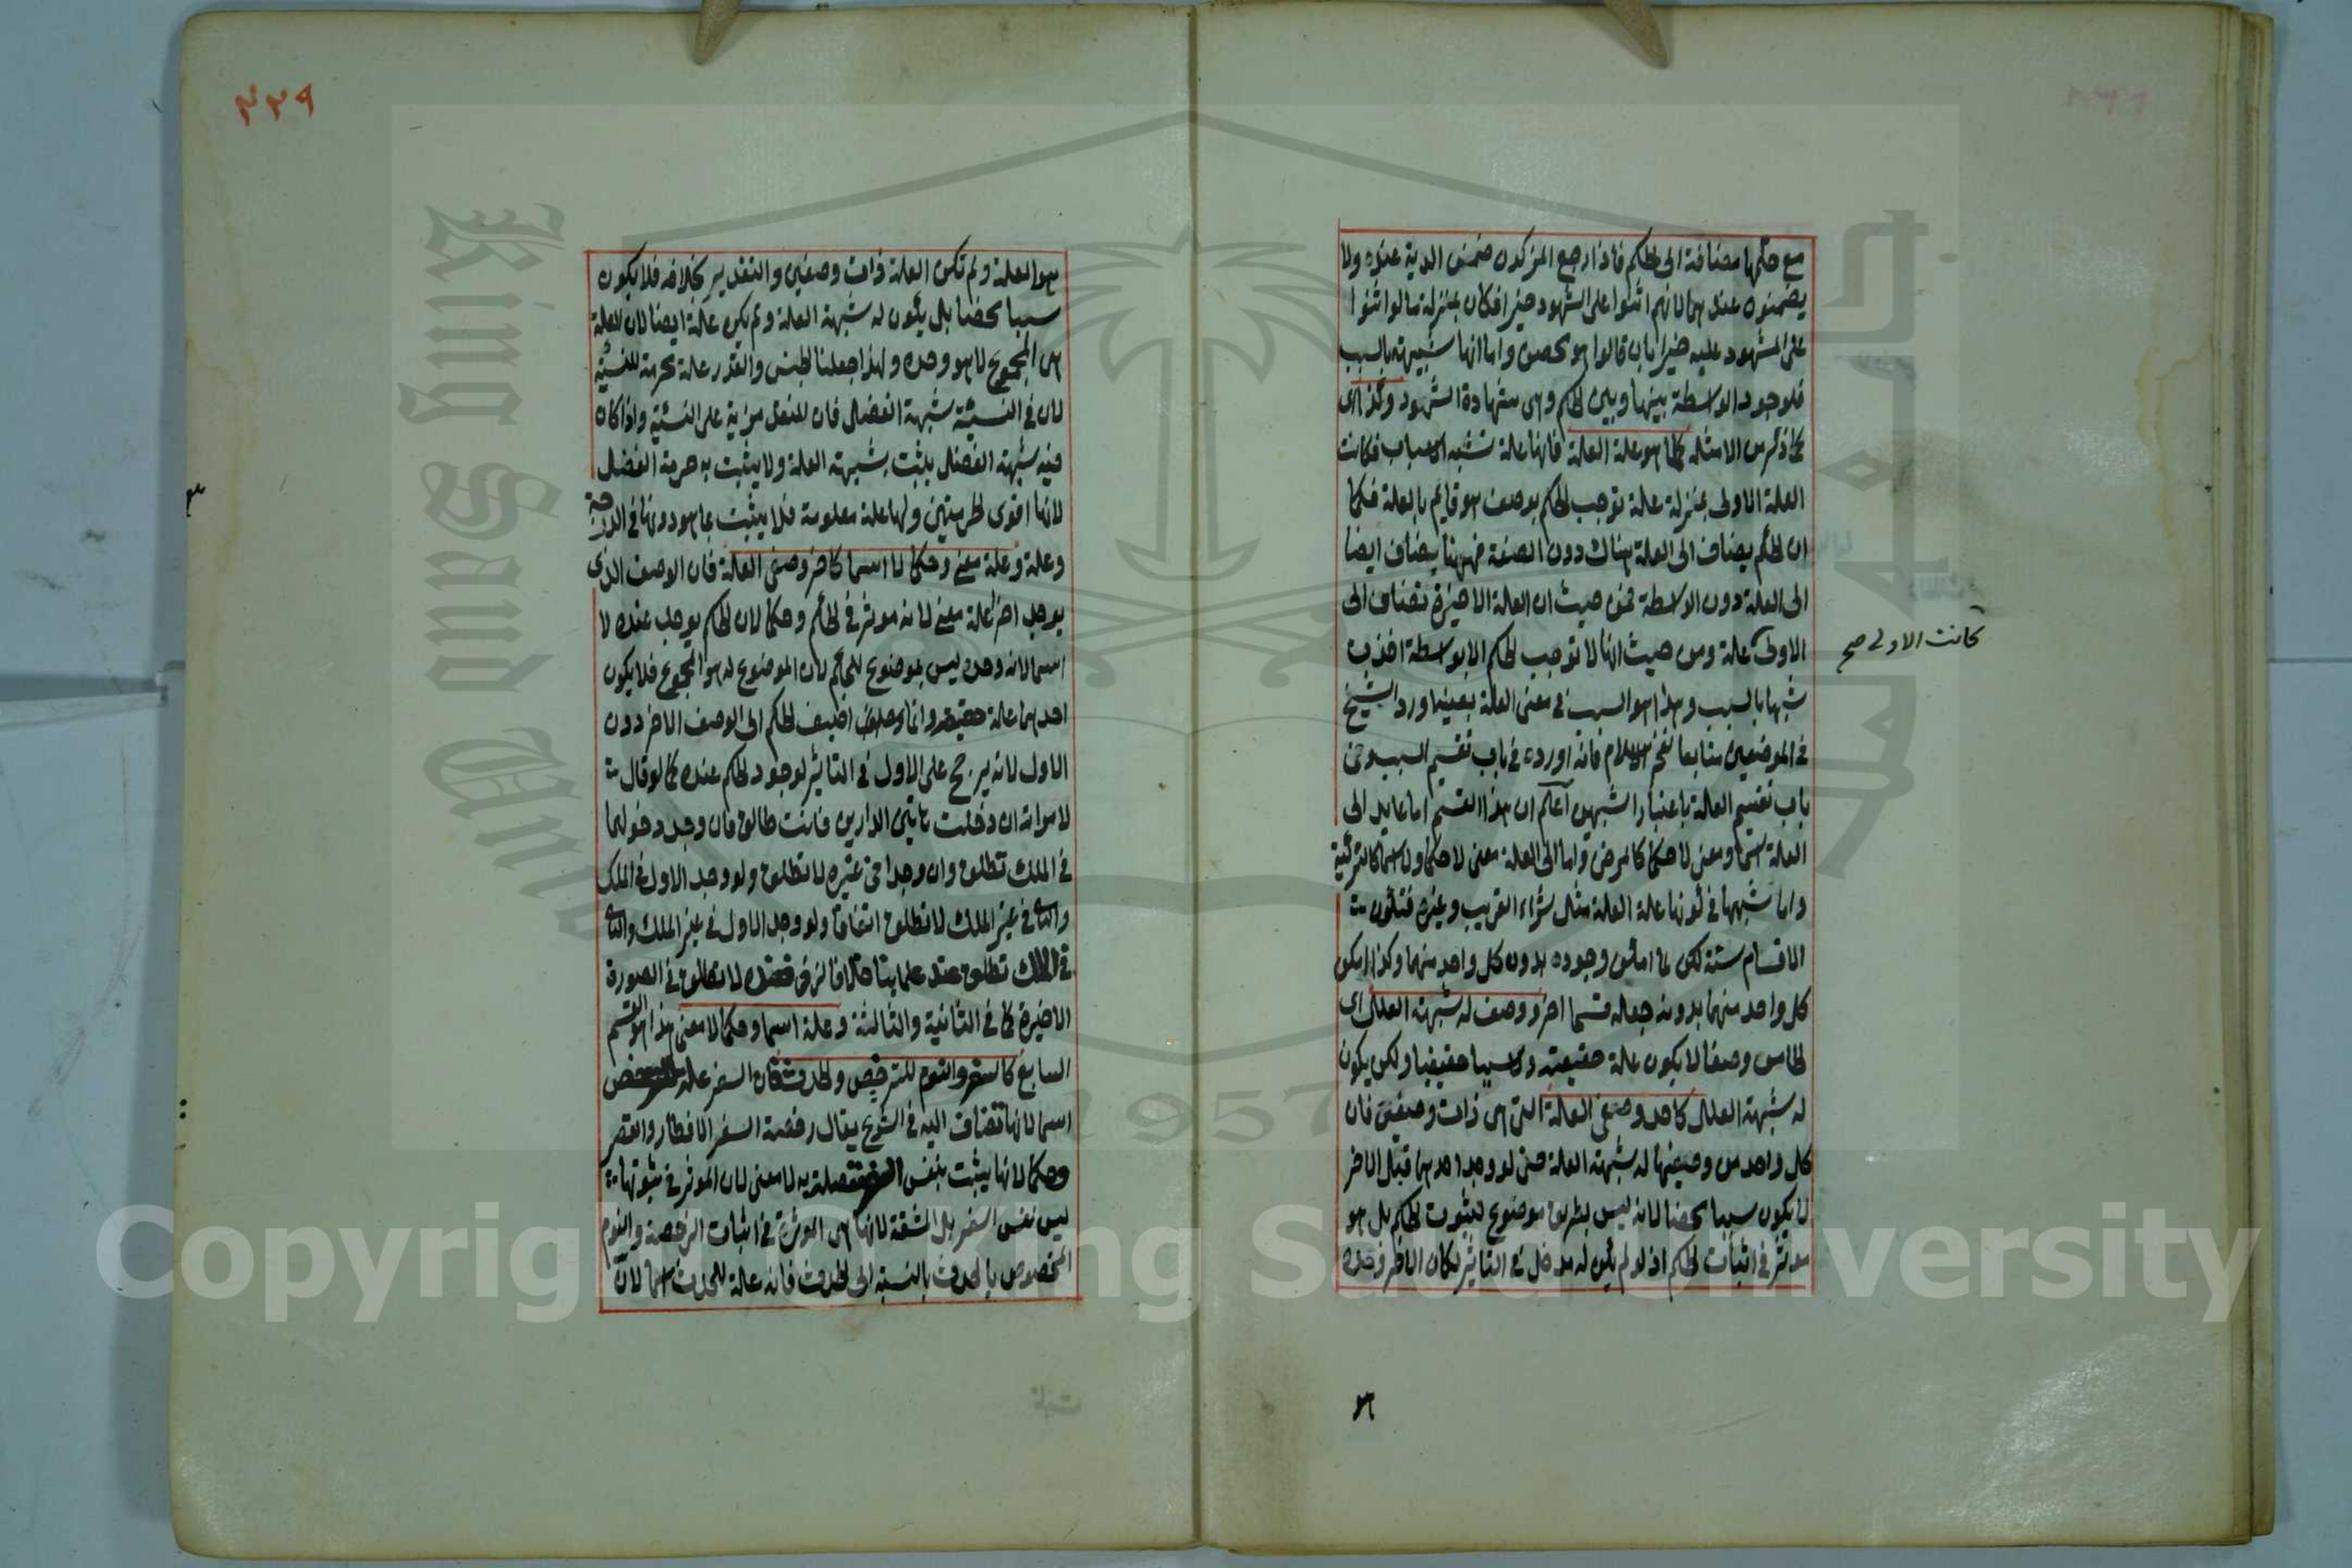 مع حكمها مضافة الى الحكم فاذا رجع المزكون ضمنوا الدية عنده ولا
يضمنون عندهما لانهم اثنوا على الشهود خيرا فكان بمنزلة ما لو اثنوا
على المشهود عليه خيرا بان قالوا هو محصن واما انها شبيهة بالسبب
فلوجود الواسطة بينها وبين الحكم وهى شهادة الشهود وكذا اى
كما ذكر من الامثلة كلما هو علة العلة فانها علة تشبه الاسباب فكانت
العلة الاولى بمنزلة علة توجب الحكم بوصف هو قايم بالعلة فكما
ان الحكم يضاف الى العلة هناك دون الصفة فههنا يضاف ايضا
الى العلة دون الواسطة فمن حيث ان العلة الاخيرة تضاف الى
الاولى علة ومن حيث انها لا توجب الحكم الا بواسطة اخذت
كانت الاولى صح
شبها بالسبب وهذا هو السبب فى معنى العلة بعينه اورد الشيخ
فى الموضعين متابعا لفخر الاسلام فانه اورده فى باب تقسيم السبب وفى
باب تقسيم العلة باعتبار الشبهين اعلم ان هذا القسم اما عايد الى
العلة اسما ومعنى لا حكما كالمرض واما الى العلة معنى لا حكما ولا اسما كالتزكية
واما شبهها فى كونها علة العلة مثل شراء القريب وغيره فتكون
الاقسام ستة لكن لما امكن وجوده بدون كل واحد منهما وكذا يكن
كل واحد منهما بدونه جعله قسما اخر ووصف له شبهة العلل اى
الخامس وصفا لا يكون علة حقيقة ولا سببا حقيقيا ولكن يكون
له شبهة العلل كاحد وصفى العلة التى هى ذات وصفين فان
كل واحد من وصفيها له شبهة العلة حتى لو وجد احدهما قبل الاخر
لا يكون سببا محضا لانه ليس بطريق موضوع لثبوت الحكم بل هو
موثر فى اثبات الحكم اذ لو لم يكن له مدخل فى التاثير لكان الاخر وحده
هو
٣٢٩
هو العلة ولم تكن العلة ذات وصفين والتقدير بخلافه فلا يكون
سببا محضا بل يكون له شبهة العلة ولم يكن علة ايضا لان العلة
هى المجموع لا هو وحده ولهذا جعلنا الجنس والقدر علة محرمة للنسيئة
لان فى النسيئة شبهة الفضل فان للنقد مزية على النسئية واذا كان
فيه شبهة الفضل يثبت بشبهة العلة ولا يثبت به حرمة الفضل
لانها اقوى الحرمتين ولها علة معلومة فلا يثبت بما هو دونها فى الدرجة
وعلة معنى وحكما لا اسما كاخر وصفى العلة فان الوصف الذى
يوجد اخر علة معنى لانه موثر فى الحكم وحكما لان الحكم يوجد عنده لا
اسما لانه وحده ليس بموضوع للحكم لان الموضوع له هو المجموع فلا يكون
احدهما علة حقيقة وانما اضيف الحكم الى الوصف الاخر دون
الاول لانه يرجح على الاول فى التاثير لوجود الحكم عنده كما لو قال
لامراته ان دخلت هاتين الدارين فانت طالق فان وجد دخولهما
فى الملك تطلق وان وجدا فى غيره لا تطلق ولو وجد الاول فى الملك
والثانى فى غير الملك لا تطلق اتفاقا ولو وجد الاول فى غير الملك والثانى
فى الملك تطلق عند علماينا خلافا لزفر فعنده لا تطلق فى الصورة
الاخيرة كما فى الثانية والثالثة وعلة اسما وحكما لا معنى هذا هو القسم
السابع كالسفر والنوم للترخيص والحدث فان السفر علة
اسما لانها تضاف اليه فى الشرع يقال رخصة السفر الافطار والقصر
وحكما لانها يثبت بنفس متصلة به لا معنى لان الموثر فى ثبوتها
ليس نفس السفر بل المشقة لانها هى الموثرة فى اثبات الرخصة والنوم
المخصوص بالحدث بالنسبة الى الحدث فانه علة للحدث اسما لان
King Saud University
1957
Copyright © King Saud University